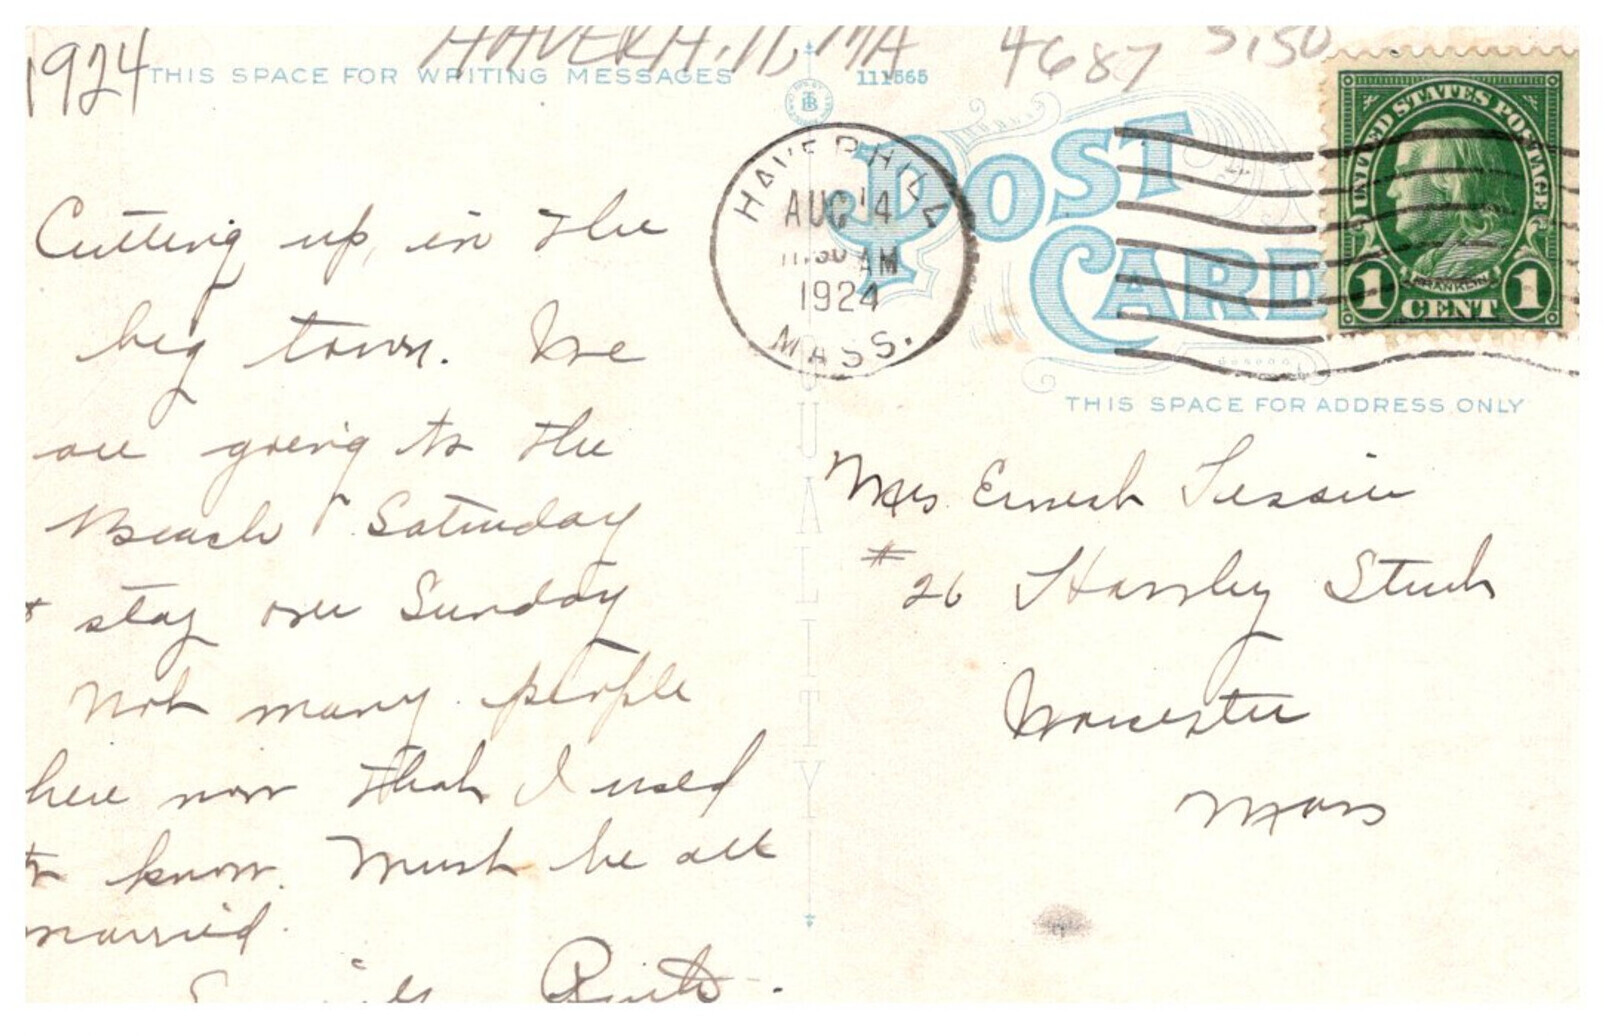 1924
HAVERHILL, MA 4687 3,50
THIS SPACE FOR WRITING MESSAGES
111565
Cutting up in the
big town. We
are going to the
Beach Saturday
& stay over Sunday
Not many people
here now that I used
to know. Must be all
married.
HAVERHILL
AUG 14
11:30 AM
1924
MASS.
POST
CARD
UNITED STATES POSTAGE
FRANKLIN
1 CENT 1
THIS SPACE FOR ADDRESS ONLY
Mrs Ernest Tessier
# 26 Street
Worcester
Mass
QUALITY